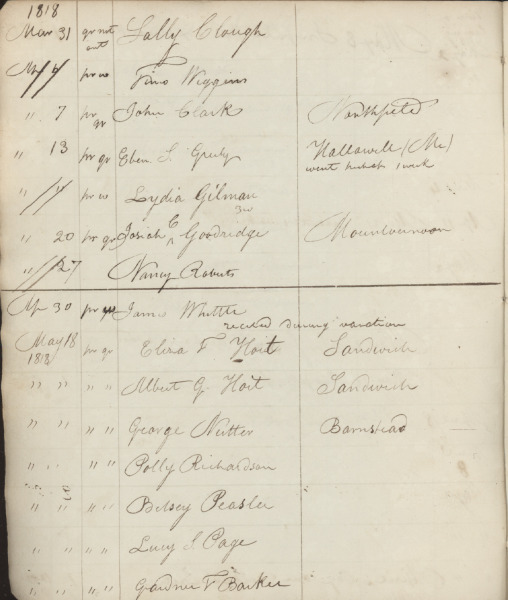 1818
Mar 31 qr not Sally Clough
out
Ap 4 pr w Tino Wiggins
" 7 pr John Clark Northfield
qr
" 13 pr qr Eben S. Greely Hallowell (Me)
went 1 week
" 14 pr w Lydia Gilman
3w
" 20 pr qr Josiah C Goodridge
" 27 Nancy Roberts
Ap 30 pr James Whittle
recited during vacation
May 18 pr qr Eliza F Hoit Sandwich
1818
" " " " Albert G. Hoit Sandwich
" " " " George Nutter Barnstead
" " " " Polly Richardson
" " " " Betsey Peaslee
" " " " Lucy S. Page
" " " " Gardner F Barker